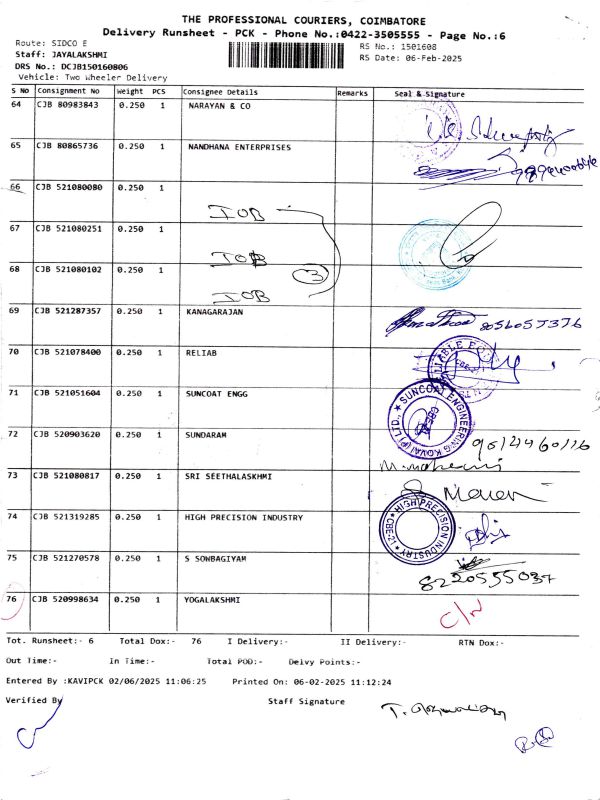 THE PROFESSIONAL COURIERS, COIMBATORE
Delivery Runsheet - PCK - Phone No.:0422-3505555 - Page No.:6
Route: SIDCO E
RS No.: 1501608
Staff: JAYALAKSHMI
RS Date: 06-Feb-2025
DRS No.: DCJB150160806
Vehicle: Two Wheeler Delivery
S No Consignment No Weight PCS Consignee Details Remarks Seal & Signature
64 CJB 80983843 0.250 1 NARAYAN & CO
65 CJB 80865736 0.250 1 NANDHANA ENTERPRISES
66 CJB 521080080 0.250 1
IOB
67 CJB 521080251 0.250 1
IOB
3
68 CJB 521080102 0.250 1
IOB
69 CJB 521287357 0.250 1 KANAGARAJAN
8056057376
70 CJB 521078400 0.250 1 RELIAB
71 CJB 521051604 0.250 1 SUNCOAT ENGG
SUNCOAT ENGINEERING KOVAI (P) LTD.,
72 CJB 520903620 0.250 1 SUNDARAM
73 CJB 521080817 0.250 1 SRI SEETHALASKHMI
74 CJB 521319285 0.250 1 HIGH PRECISION INDUSTRY
HIGH PRECISION INDUSTRY CBE-21
75 CJB 521270578 0.250 1 S SONBAGIYAM
8220555037
76 CJB 520998634 0.250 1 YOGALAKSHMI
C/N
Tot. Runsheet:- 6 Total Dox:- 76 I Delivery:- II Delivery:- RTN Dox:-
Out Time:- In Time:- Total POD:- Delvy Points:-
Entered By :KAVIPCK 02/06/2025 11:06:25 Printed On: 06-02-2025 11:12:24
Verified By Staff Signature